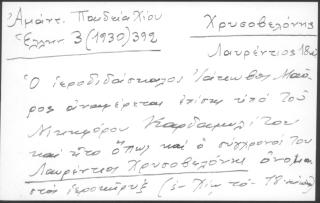 Ἀμάντ. Παιδεία Χίου
Ἑλλην 3 (1930) 392
Χρυσοβελόνης
Λαυρέντιος 18αι
Ὁ ἱεροδιδάσκαλος Μαῦ
ρος ἀναφέρεται ἐπίσης ὑπό τοῦ
Νικηφόρου Καρδαμυλίτου
καί ἦτο ὅπως καί ὁ σύγχρονός του
Λαυρέντιος Χρυσοβελόνης ὀνομα
στός ἱεροκῆρυξ (ἐν Χίῳ τό 18